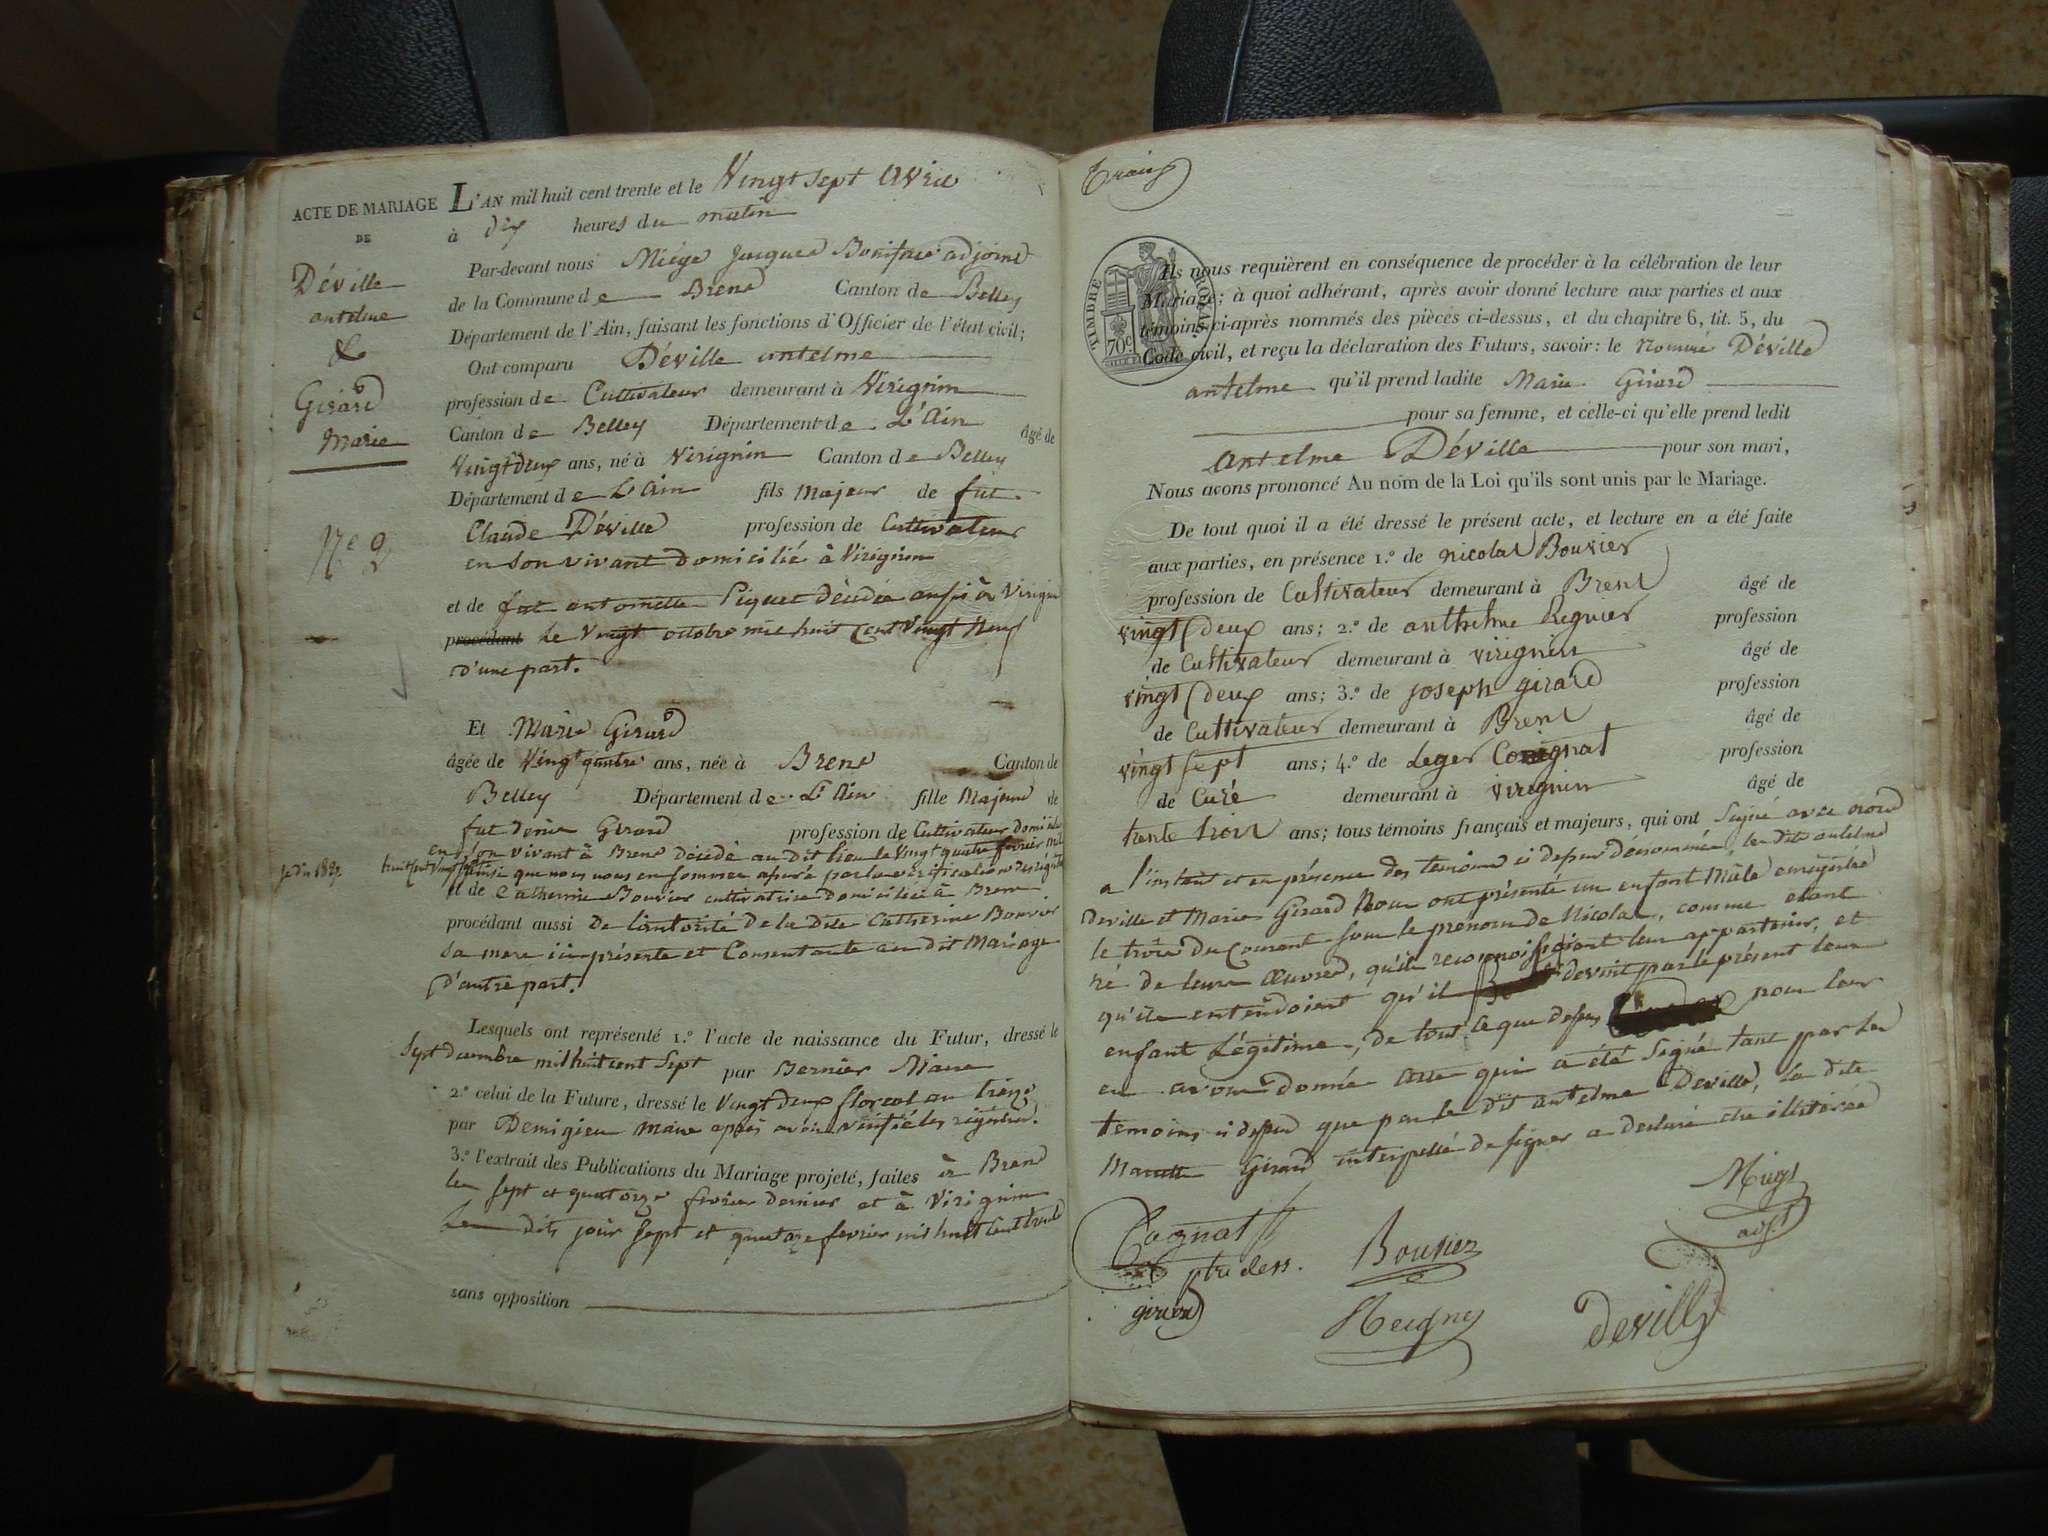 ACTE DE MARIAGE
DE
Déville
antelme
&
Girard
Marie
N.e 9
L'AN mil huit cent trente et le Vingt sept avril
à dix heures du matin
Par-devant nous Miège Jacques Boniface adjoint
de la Commune de Brens Canton de Belley
Département de l'Ain, faisant les fonctions d'Officier de l'état civil;
Ont comparu Déville antelme
profession de Cultivateur demeurant à Virignin
Canton de Belley Département de L'Ain âgé de
Vingt deux ans, né à Virignin Canton de Belley
Département de L'Ain fils Majeur de fut
Claude Déville profession de Cultivateur
en son vivant domicilié à Virignin
et de fut antoinette Piquet décédée aussi à Virignin
procédant le Vingt octobre mil huit Cent Vingt Neuf
d'une part.
Et Marie Girard
âgée de Vingt quatre ans, née à Brens Canton de
Belley Département de L'Ain fille Majeure de
fut Girard profession de Cultivateur domicilié
en son vivant à Brens décédé au dit lieu le Vingt quatre fevrier mil
huit Cent Vingt ainsi que nous nous en sommes assuré par la vérification des régistres
et de Catherine Bouvier cultivatrice domiciliée à Brens
procédant aussi De l'autorité de la dite Catherine Bouvier
sa mere ici présente et Consentante au dit Mariage
d'autre part.
Lesquels ont représenté 1.º l'acte de naissance du Futur, dressé le
Sept decembre mil huit cent Sept par Bernier Maire
2.º celui de la Future, dressé le Vingt deux floreal an treize
par Demigieu Maire après avoir vérifié les régistres.
3.º l'extrait des Publications du Mariage projeté, faites à Brens
les sept et quatorze fevrier dernier et à Virignin
les dits jour Sept et quatorze fevrier mil huit Cent trente
sans opposition
TIMBRE ROYAL
70c
Ils nous requièrent en conséquence de procéder à la célébration de leur
Mariage; à quoi adhérant, après avoir donné lecture aux parties et aux
témoins ci-après nommés des pièces ci-dessus, et du chapitre 6, tit. 5, du
Code civil, et reçu la déclaration des Futurs, savoir: le Nommé Déville
antelme qu'il prend ladite Marie Girard
pour sa femme, et celle-ci qu'elle prend ledit
Antelme Déville pour son mari,
Nous avons prononcé Au nom de la Loi qu'ils sont unis par le Mariage.
De tout quoi il a été dressé le présent acte, et lecture en a été faite
aux parties, en présence 1.º de nicolas Bouvier
profession de Cultivateur demeurant à Brens âgé de
vingt deux ans; 2.º de anthelme Regnier profession
de Cultivateur demeurant à virignin âgé de
vingt deux ans; 3.º de joseph girard profession
de Cultivateur demeurant à Brens âgé de
vingt sept ans; 4.º de Leger profession
de Curé demeurant à virignin âgé de
trente trois ans; tous témoins français et majeurs, qui ont Signé avec nous
a l'instant et en présence des temoins ci dessus dénommés, les dits antelme
Deville et Marie Girard Nous ont présenté un enfant Mâle enregistré
le trois du Courant sous le prénom de Nicolas, comme étant
né de leurs Œuvres, qu'ils reconnoissoient leur appartenir, et
qu'ils entendoient qu'il devint par le présent leur
enfant Légitime, de tout ce que dessus nous leur
en avons donné acte qui a été Signé tant par les
temoins ci dessus que par le dit antelme Deville, la dite
Girard interpellée de signer a déclaré être illitérée
Miege
adjt
Cognat
ptre dess.
Bouvier
girard
Regny
deville